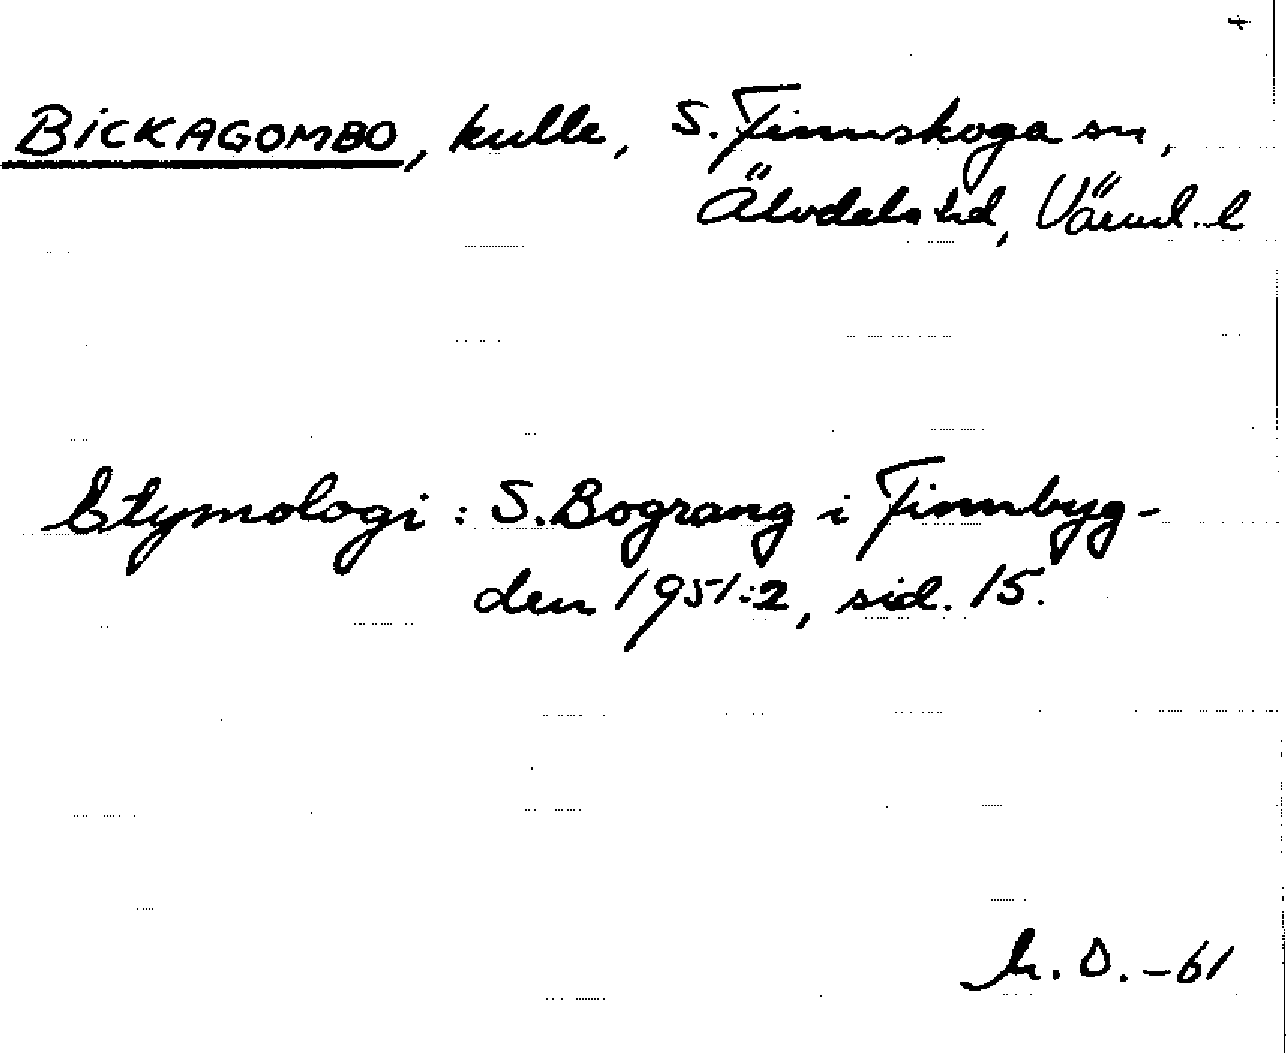 BICKAGOMBO, kulle, S. Finnskoga sn,
Älvdals hd, Värml. l
Etymologi: S. Bograng i Finnbyg-
den 1951:2, sid. 15.
O. -61